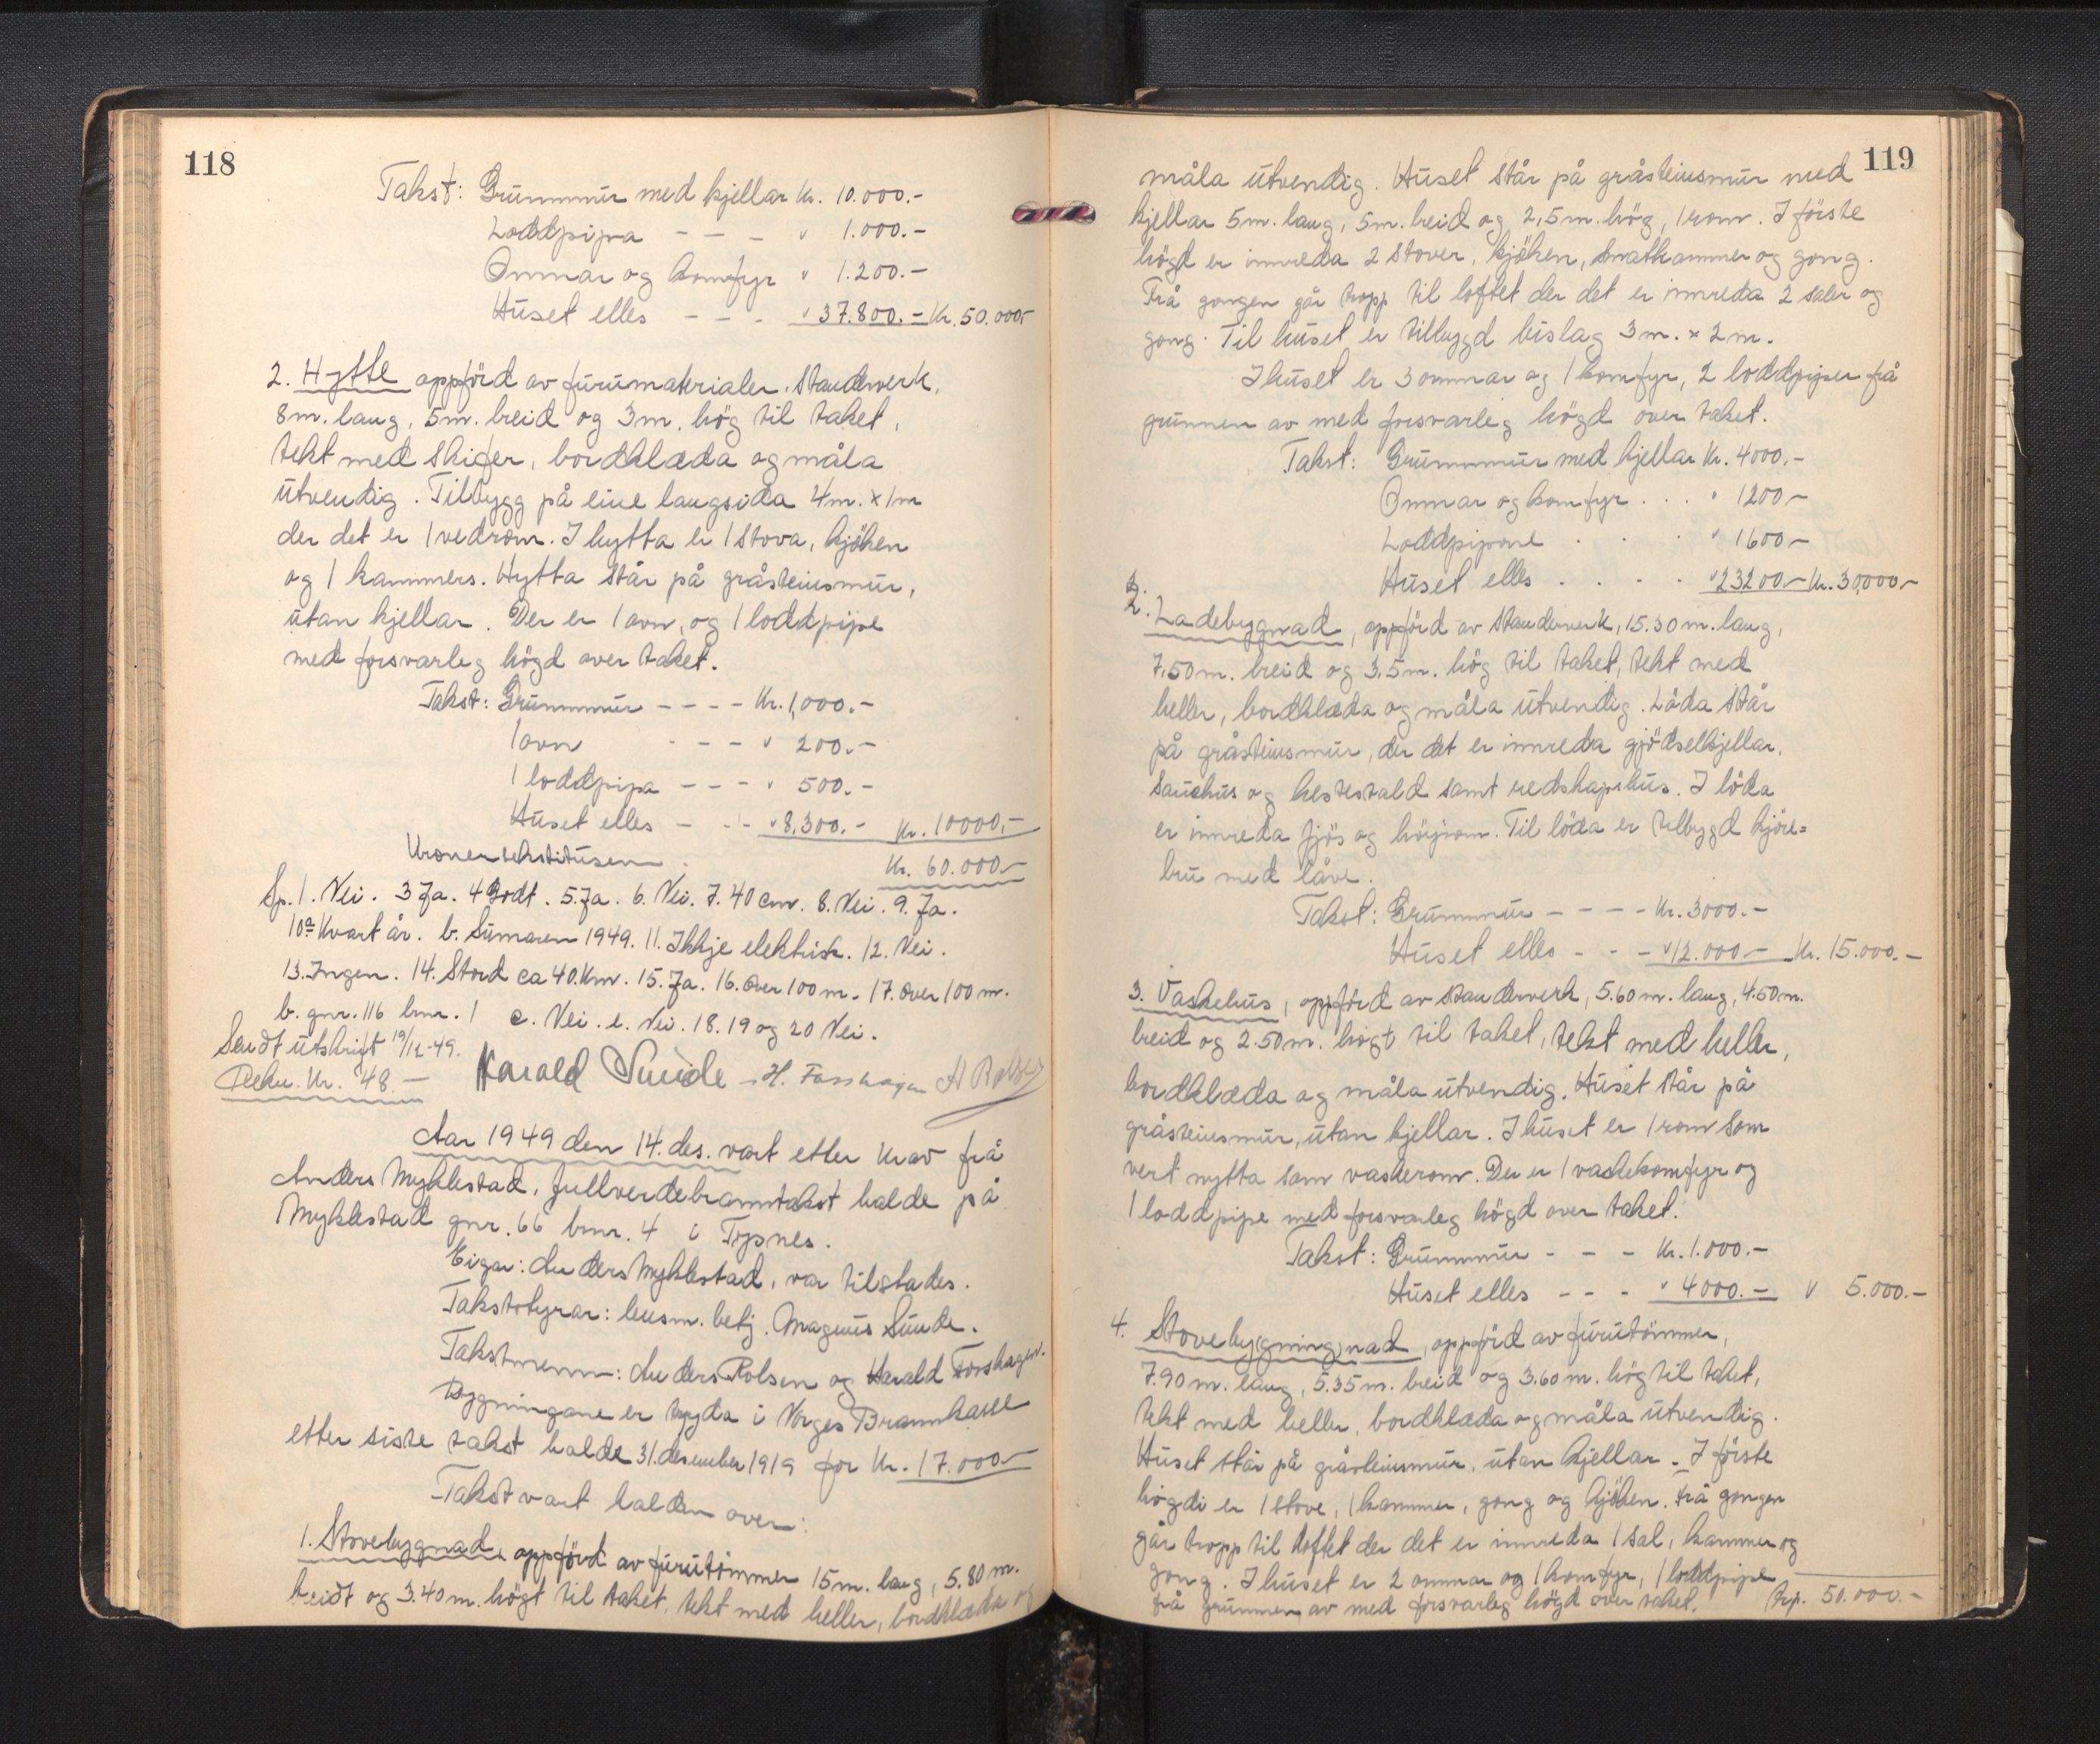 118
Takst: Grunnmur med kjellar Kr. 10.000.-
Loddpipa - - - " 1.000.-
Omnar og komfyr " 1.200.-
Huset elles - - - " 37.800.- Kr. 50.000.-
2. Hytte oppförd av furumaterialer, standerverk,
8m. lang, 5m. breid og 3m. hög til taket,
tekt med skifer, bordklæda og måla
utvendig. Tilbygg på eine langsida 4m. x 1m
der det er 1 vedrom. I hytta er 1 stova, kjöken
og 1 kammers. Hytta står på gråsteinsmur,
utan kjellar. Der er 1 ovn, og 1 loddpipe
med forsvarleg högd over taket.
Takst: Grunnmur - - - - Kr. 1,000.-
1 ovn - - - " 200.-
1 loddpipa - - - " 500.-
Huset elles - - - " 8,300.- Kr. 10000,-
Kr. 60.000-
Sp. 1. Nei. 3 Ja. 4 Godt. 5. Ja. 6. Nei. 7. 40 cm. 8. Nei. 9. Ja.
10a Kvart år. b. Sumaren 1949. 11. Ikkje elektrisk. 12. Nei.
13. Ingen. 14. Stord ca 40 Km. 15. Ja. 16. Over 100 m. 17. Over 100 m.
b. gnr. 116 bnr. 1 c. Nei. e. Nei. 18. 19 og 20 Nei.
Sendt utskrift 19/12-49.
Rekn. Kr. 48.-
Harald Sunde - H. Fosshagen A Rolsen
Aar 1949 den 14. des. vart etter krav frå
Anders Myklestad, fullverdebranntakst halde på
Myklestad gnr. 66 bnr. 4 i Tysnes.
Eigar: Anders Myklestad, var tilstades.
Takststyrar: lensm. betj. Magnus Sunde.
Takstmenn: Anders Rolsen og Harald Fosshagen.
Bygningane er trygda i Norges Brannkasse
etter siste takst halde 31. desember 1919 for Kr. 17.000-
Takst vart halden over:
1. Stovebygnad, oppförd av furutömmer 15m. lang, 5.80 m.
breidt og 3.40 m. högt til taket, tekt med heller, bordklæda og
119
måla utvendig. Huset står på gråsteinsmur med
kjellar 5m. lang, 5m. breid og 2,5m. hög, 1 rom. I förste
högd er innreda 2 stover, kjöken, matkammer og gong.
Frå gongen går tropp til loftet der det er innreda 2 saler og
gong. Til huset er tilbygd bislag 3m. x 2m.
I huset er 3 omnar og 1 komfyr, 2 loddpiper frå
grunnen av med forsvarleg högd over taket.
Takst: Grunnmur med kjellar Kr. 4000.-
Omnar og komfyr . . . " 1200-
Loddpipone . . . " 1600-
Huset elles . . . . " 23200- Kr. 30,000-
2. Ladebygnad, oppförd av standerverk, 15.30 m. lang,
7,50m. breid og 3,5m. hög til taket, tekt med
heller, bordklæda og måla utvendig. Löda står
på gråsteinsmur, der det er innreda gjödselkjellar,
sauehus og hestestald samt redskapshus. I löda
er innreda fjös og höyrom. Til löda er tilbygd kjöre=
bru med låve.
Takst: Grunnmur - - - - Kr. 3000.-
Huset elles - - - " 12.000.- Kr. 15.000.-
3. Vaskehus, oppförd av standerverk, 5.60m. lang, 4.50m.
breid og 2.50m. högt til taket, tekt med heller,
bordklæda og måla utvendig. Huset står på
gråsteinsmur, utan kjellar. I huset er 1 rom som
vert nytta som vaskerom. Der er 1 vaskekomfyr og
1 loddpipe med forsvarleg högd over taket.
Takst: Grunnmur - - - Kr. 1.000.-
Huset elles - - - " 4000.- " 5.000.-
4. Stovebygningnad, oppförd av furutömmer,
7.90 m. lang, 5.35m. breid og 3.60m. hög til taket,
tekt med heller, bordklæda og måla utvendig.
Huset står på gråsteinsmur, utan kjellar. I förste
högdi er 1 stove, 1 kammer, gong og kjöken. Frå gongen
går tropp til loftet der det er innreda 1 sal, kammer og
gong. I huset er 2 omnar og 1 komfyr, 1 loddpipe
frå grunnen av med forsvarleg högd over taket. Trp. 50.000.-